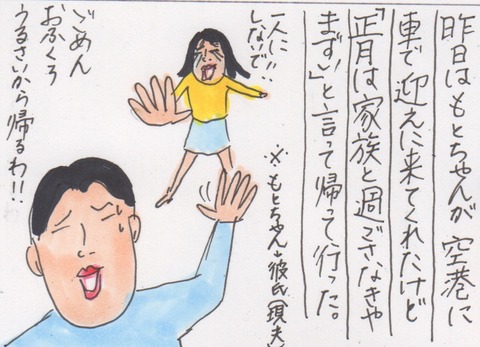 昨日はもとちゃんが空港に
車で迎えに来てくれたけど
「正月は家族と過ごさなきゃ
まずい」と言って帰って行った。
※もとちゃん→彼氏(現夫)
一人に!!
しないで
ごめん
おふくろ
うるさいから帰るわ!!